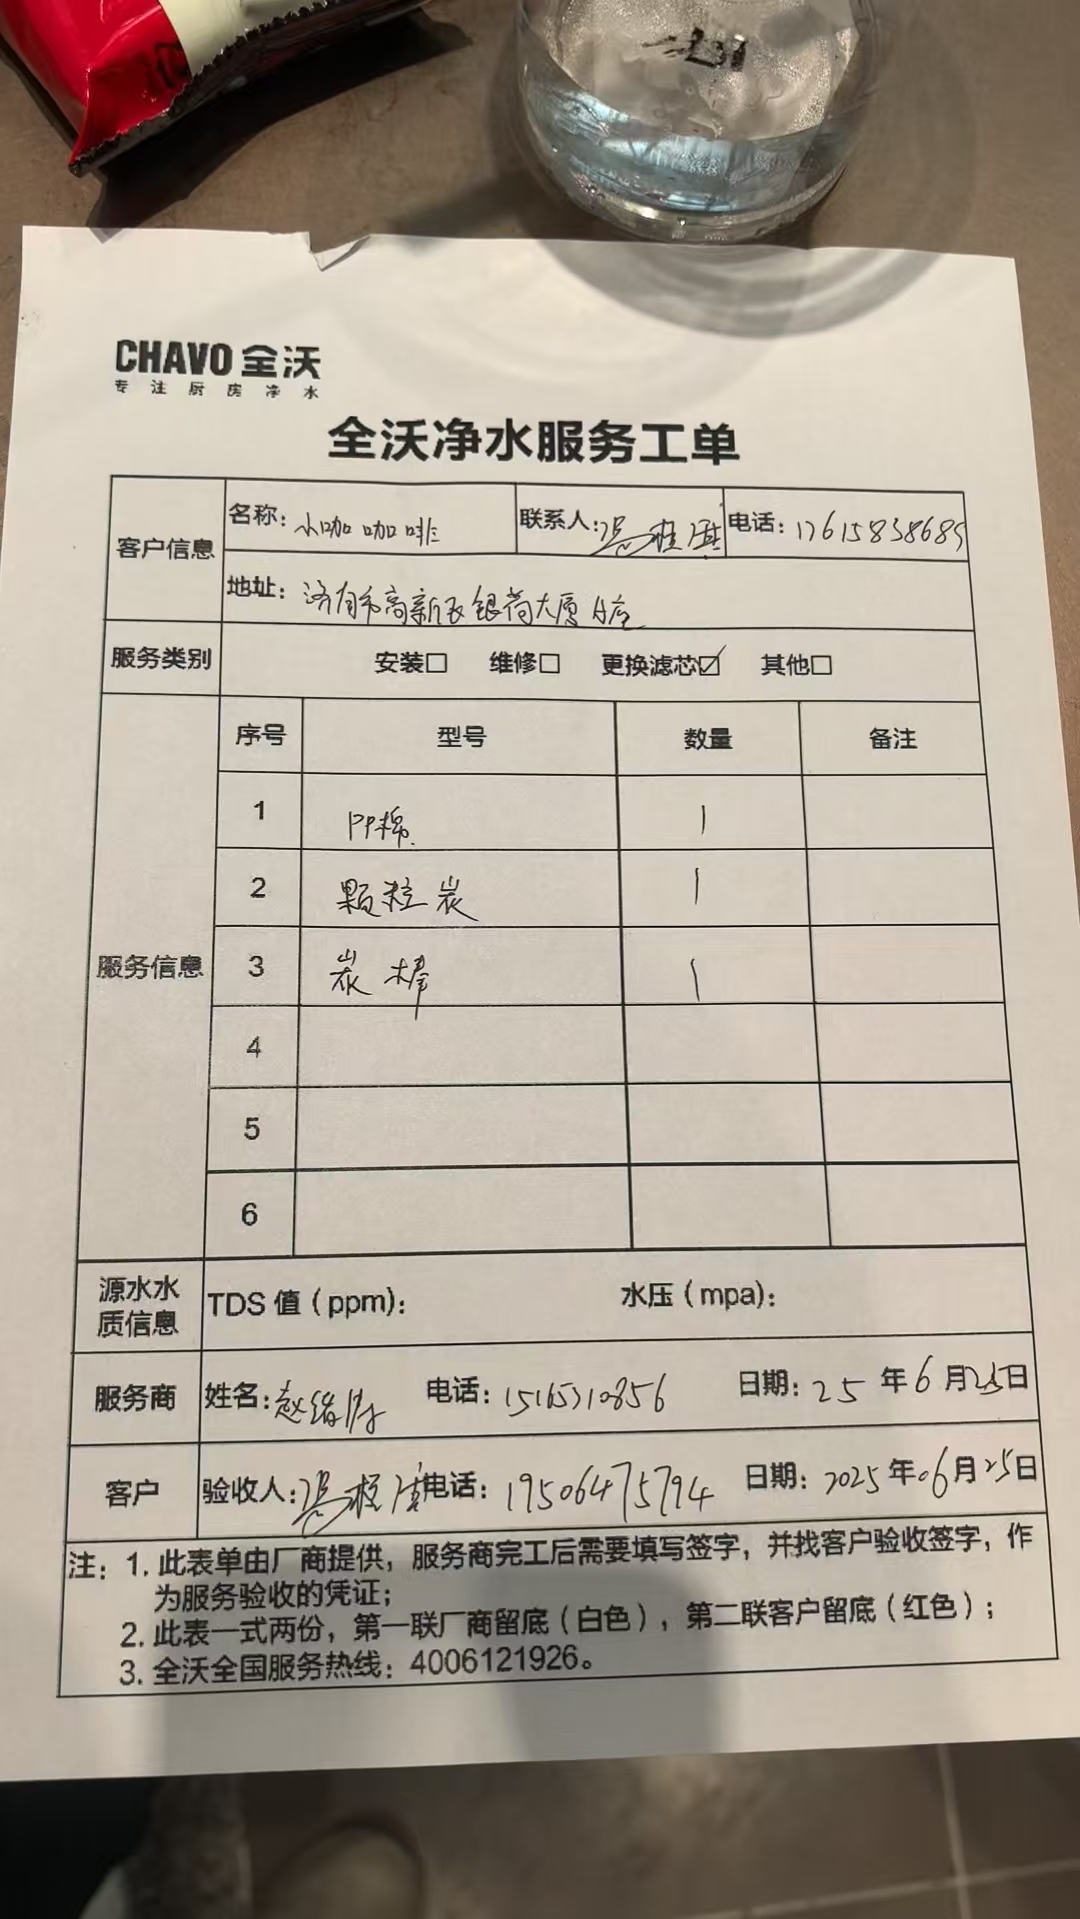 CHAVO 全沃
专注厨房净水
全沃净水服务工单
客户信息 名称：小咖咖啡 联系人：冯桂淇 电话：17615838689
地址：济南市高新区银荷大厦B座
服务类别 安装□ 维修□ 更换滤芯☑ 其他□
服务信息 序号 型号 数量 备注
1 PP棉 1
2 颗粒炭 1
3 炭棒 1
4
5
6
源水水质信息 TDS 值（ppm）： 水压（mpa）：
服务商 姓名：赵绪 电话：15165310856 日期：25 年 6 月 25 日
客户 验收人：冯 电话：19506475794 日期：2025 年 06 月 25 日
注：1. 此表单由厂商提供，服务商完工后需要填写签字，并找客户验收签字，作
为服务验收的凭证；
2. 此表一式两份，第一联厂商留底（白色），第二联客户留底（红色）；
3. 全沃全国服务热线：4006121926。